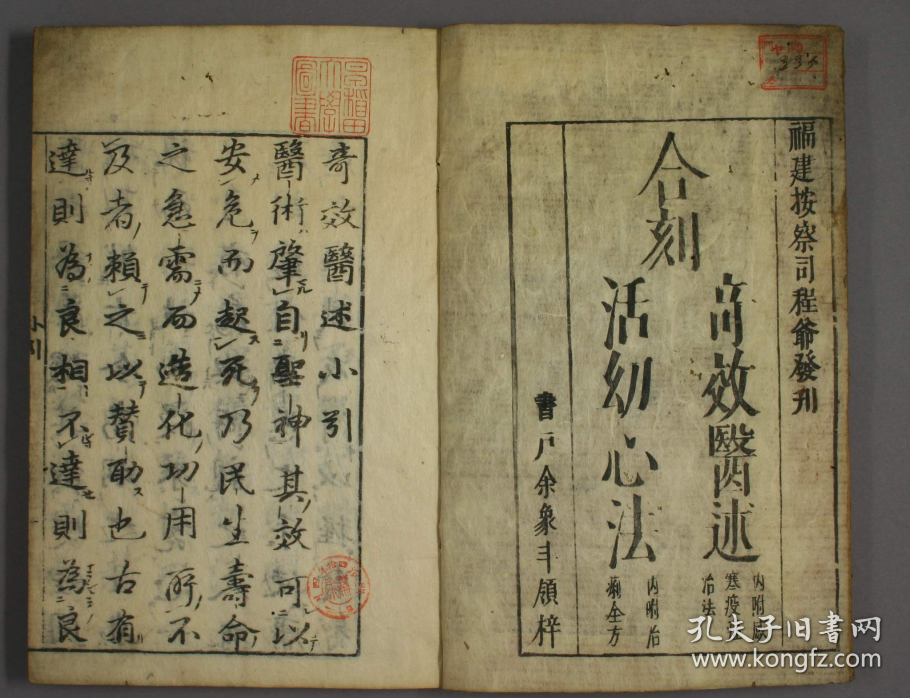 福建按察司程爺發刊
合刻
奇效醫述
內附
寒疫
治法
活幼心法
內附治
痢全方
書戶余象斗領梓
奇效醫述小引
醫術肇自聖神其效可以
安危而起死乃民生壽命
之急需而造化功用所不
及者賴之以贊助也古有
達則為良相不達則為良
小引
早稻田
大學
圖書
孔夫子旧书网
www.kongfz.com